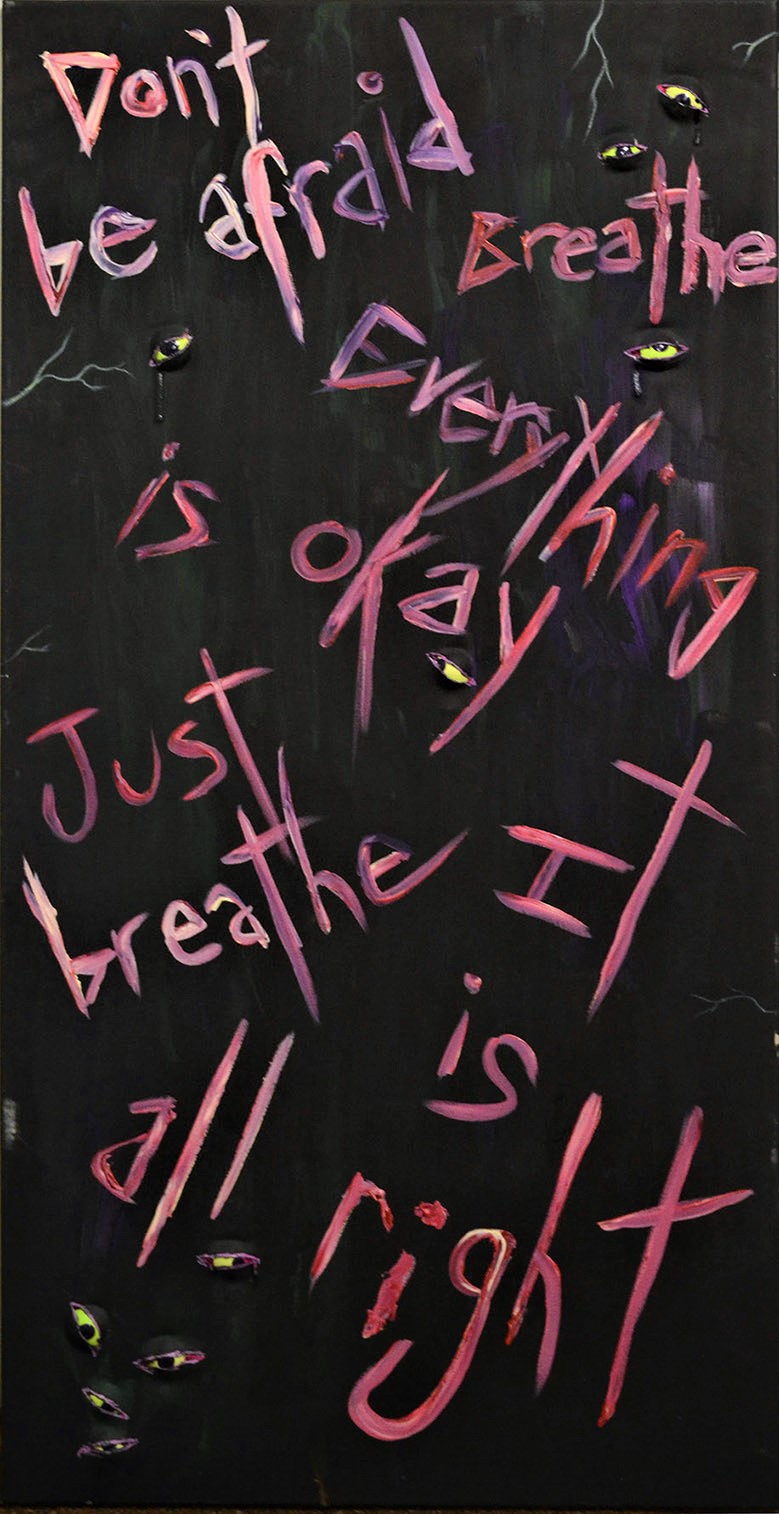 Don't
be afraid
Breathe
Everything
is okay
Just
breathe It
is
all right